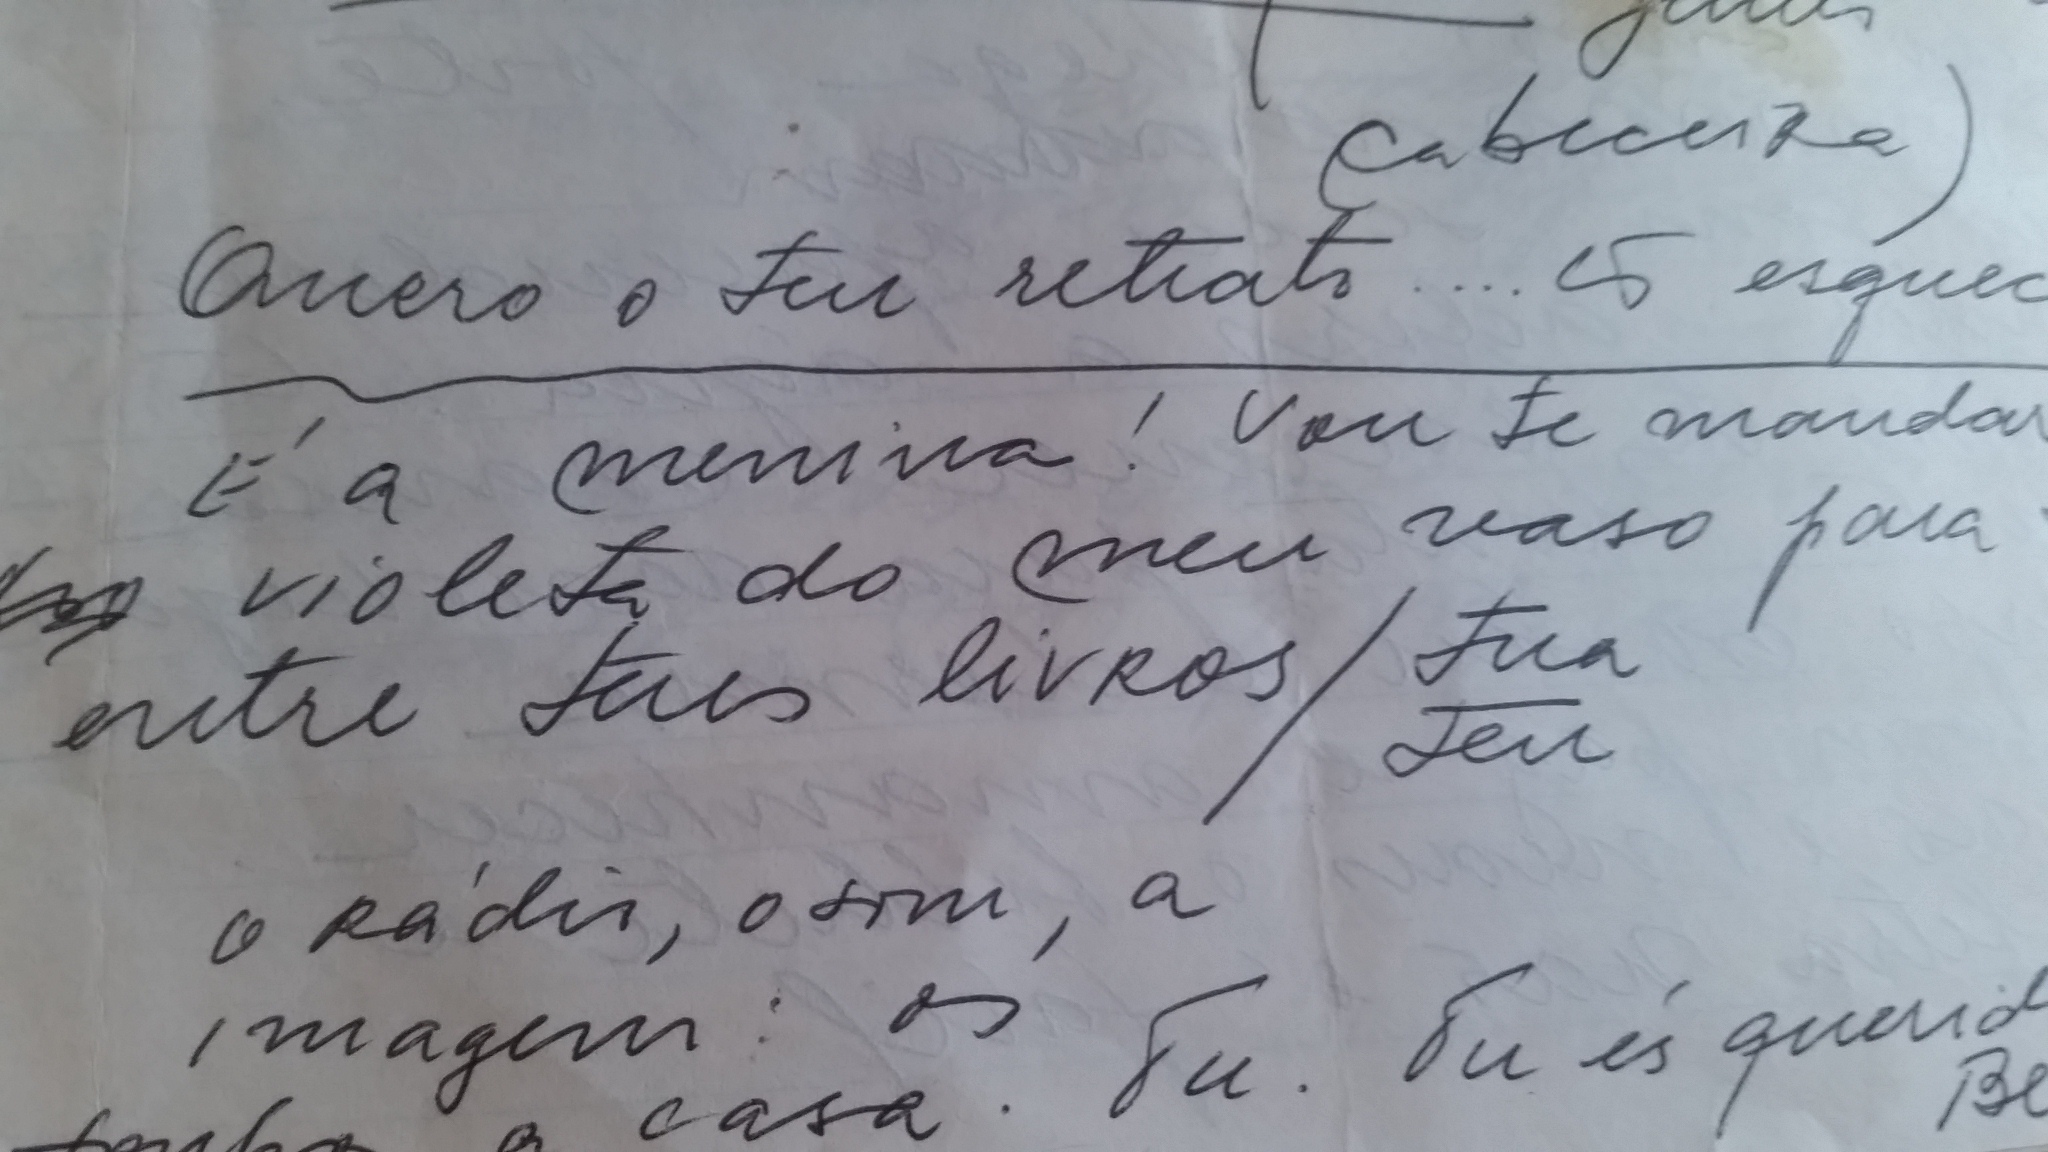 cabeceira)
Quero o teu retrato.... esquec
É a menina! Vou te mandar
violeta do meu vaso para
entre teus livros/ tua
teu
o rádio, o som, a
imagem: és Tu. Tu és querid
a casa. Be